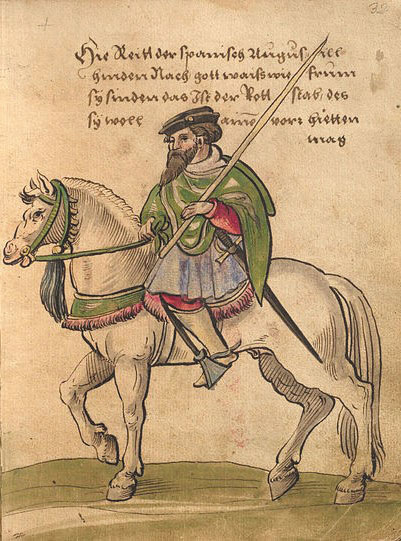 32
Hie Reitt der spanisch Augusill
hinden Nach gott waiss wie frum
sy sinden das Ist der Rott stab des
sy woll vorr hietten
mag